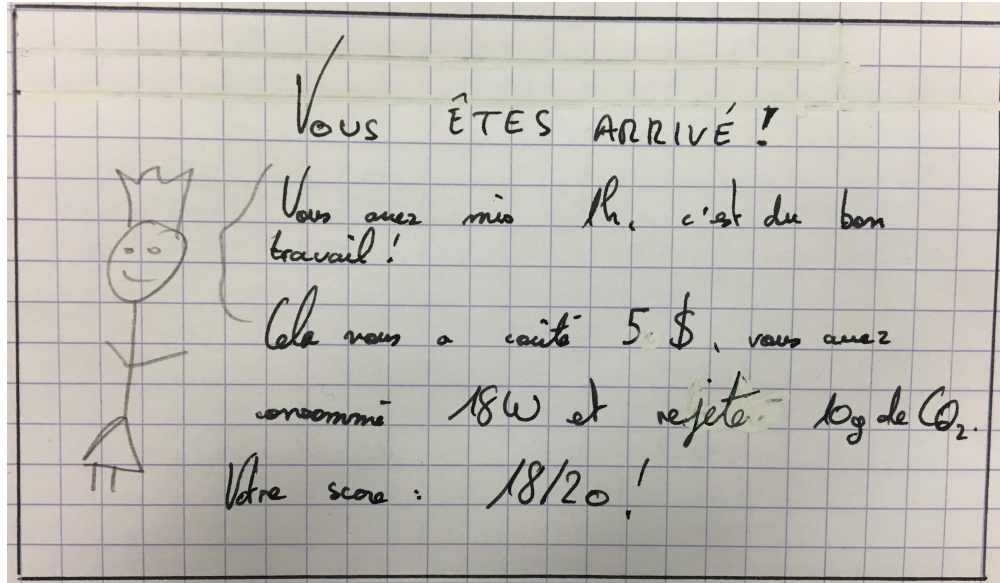 VOUS ÊTES ARRIVÉ !
Vous avez mis 1h, c'est du bon
travail !
Cela vous a coûté 5 $, vous avez
consommé 18W et rejeté 10g de CO₂.
Votre score : 18/20 !